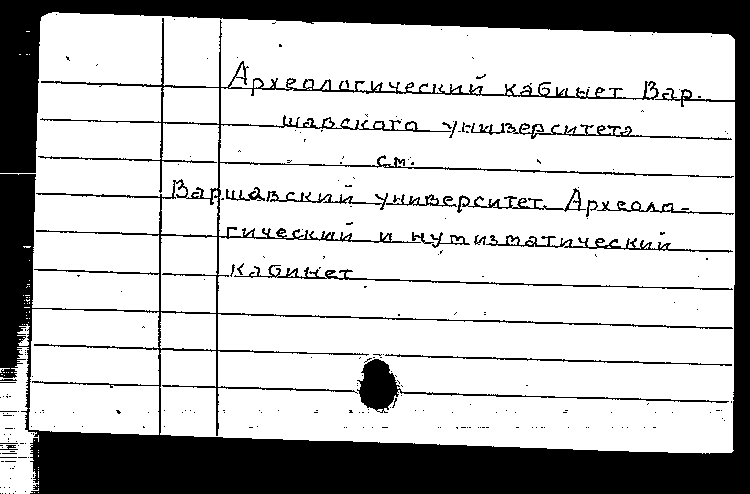 Археологический кабинет Вар-
шавского университета
см.
Варшавский университет. Археоло-
гический и нумизматический
кабинет